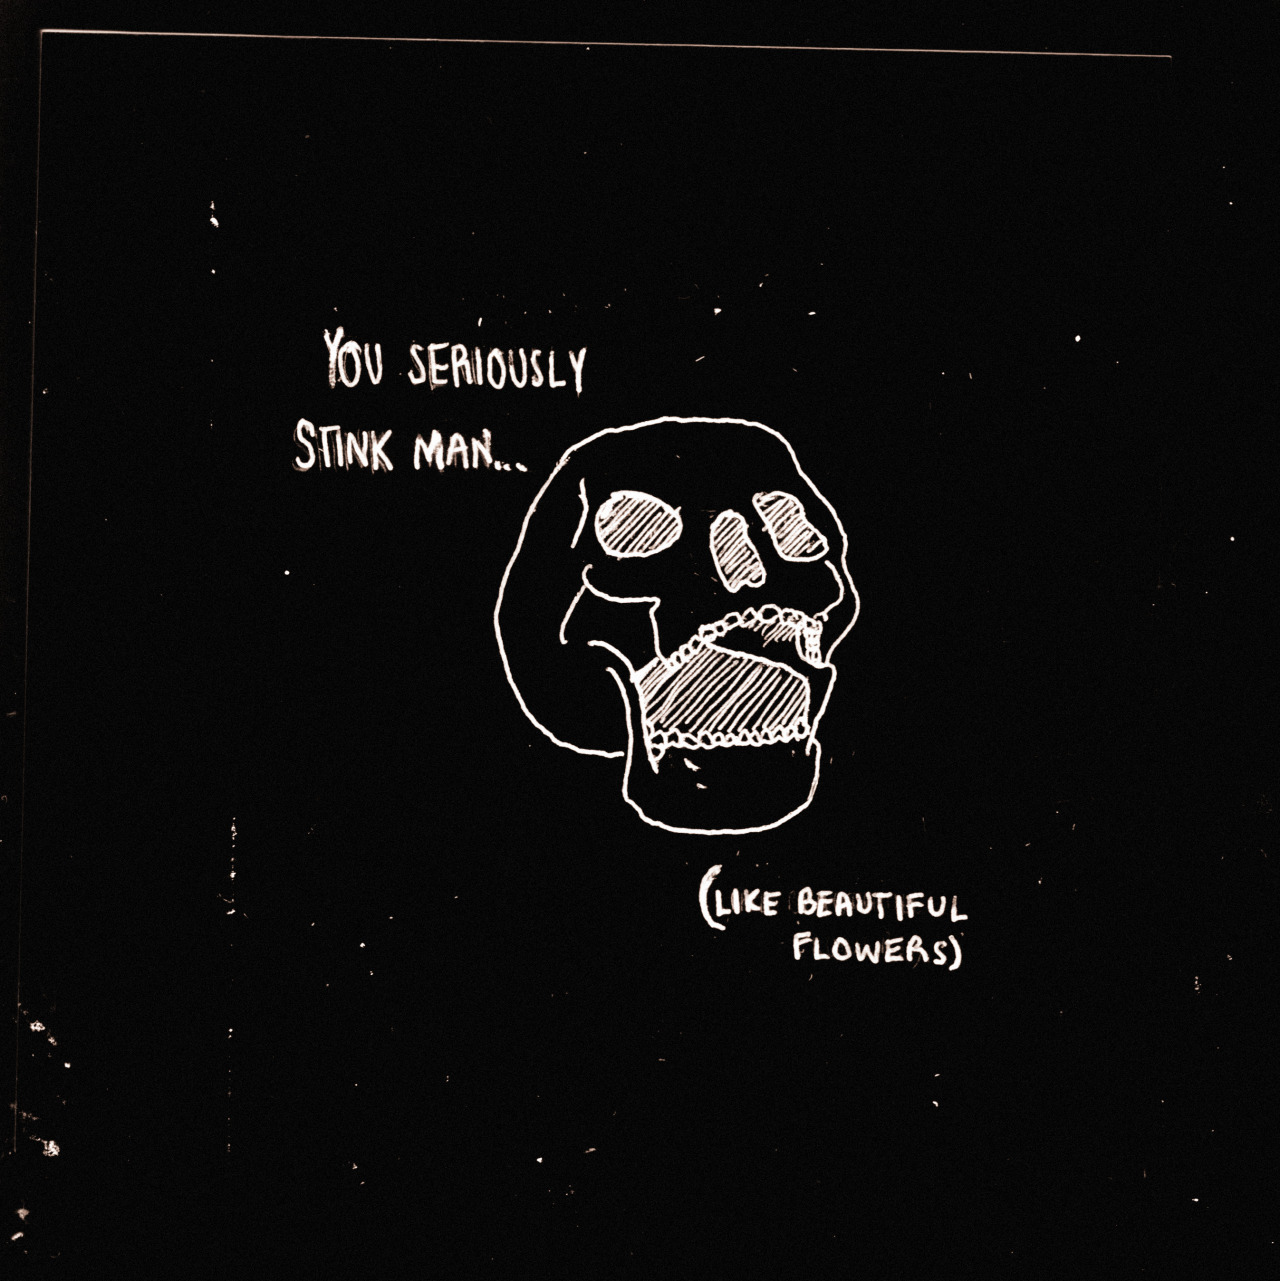 YOU SERIOUSLY
STINK MAN...
(LIKE BEAUTIFUL
FLOWERS)